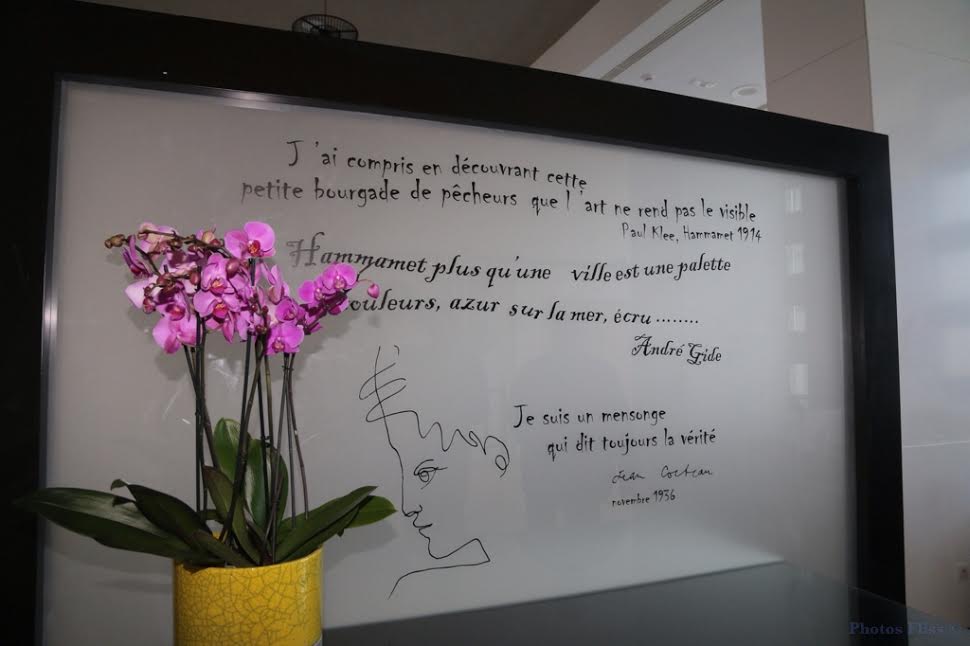 J'ai compris en découvrant cette
petite bourgade de pêcheurs que l'art ne rend pas le visible
Paul Klee, Hammamet 1914
Hammamet plus qu'une ville est une palette
ouleurs, azur sur la mer, écru ........
André Gide
Je suis un mensonge
qui dit toujours la vérité
Jean Cocteau
novembre 1936
Photos